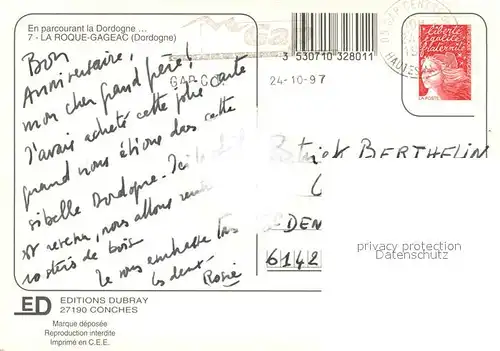 En parcourant la Dordogne ...
7 - LA ROQUE-GAGEAC (Dordogne)
3 530710 328011
GAP CC
24-10-97
liberté
égalité
fraternité
LA POSTE
Bon
Anniversaire,
mon cher grand père!
J'avais acheté cette jolie carte
quand nous étions dans cette
si belle Dordogne. Ici
est revenu, nous allons
de bois
Je vous embrasse
Rosie
BERTHELIN
DEN
6142
privacy protection
Datenschutz
ED
EDITIONS DUBRAY
27190 CONCHES
Marque déposée
Reproduction interdite
Imprimé en C.E.E.